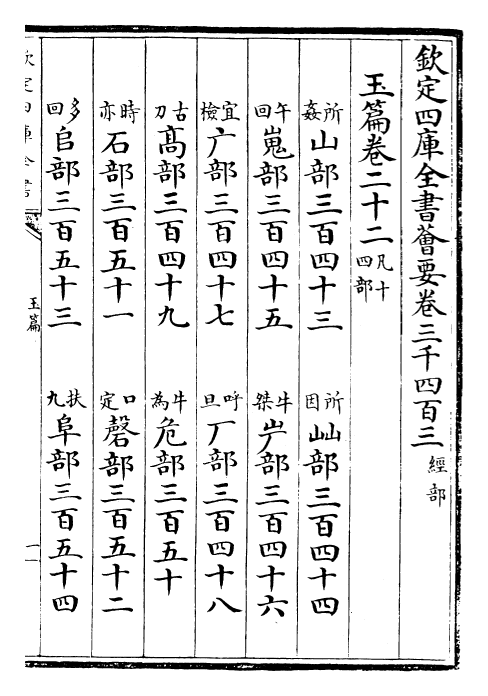 欽定四庫全書薈要卷三千四百三 經部
玉篇卷二十二 凡十四部
所姦山部三百四十三 所因屾部三百四十四
午回嵬部三百四十五 牛桀屵部三百四十六
宜檢广部三百四十七 呼旦厂部三百四十八
古刀高部三百四十九 牛為危部三百五十
時亦石部三百五十一 口定磬部三百五十二
多回𠂤部三百五十三 扶九阜部三百五十四
欽定四庫全書
玉篇
一